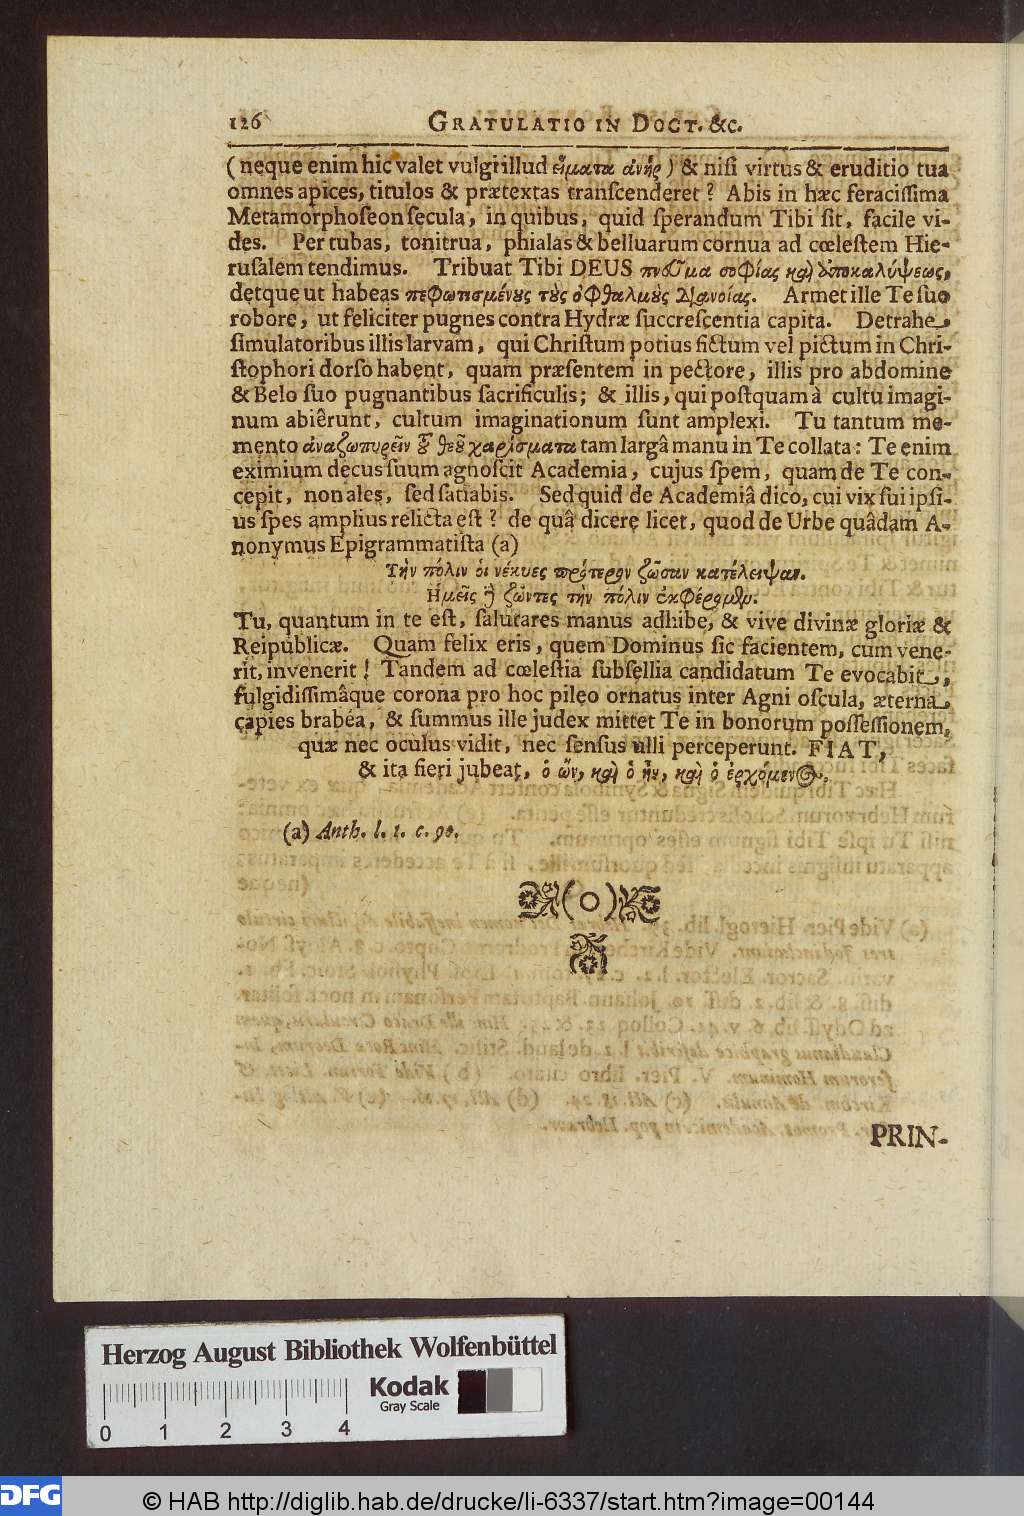 126 GRATULATIO IN DOCT. &c.
(neque enim hic valet vulgi illud εἵματα ἀνήρ) & nisi virtus & eruditio tua
omnes apices, titulos & prætextas transcenderet? Abis in hæc feracissima
Metamorphoseon secula, in quibus, quid sperandum Tibi sit, facile vi-
des. Per tubas, tonitrua, phialas & belluarum cornua ad cœlestem Hie-
rusalem tendimus. Tribuat Tibi DEUS πνεῦμα σοφίας καὶ ἀποκαλύψεως,
detque ut habeas πεφωτισμένους τοὺς ὀφθαλμοὺς διανοίας. Armet ille Te suo
robore, ut feliciter pugnes contra Hydræ succrescentia capita. Detrahe
simulatoribus illis larvam, qui Christum potius fictum vel pictum in Chri-
stophori dorso habent, quam præsentem in pectore, illis pro abdomine
& Belo suo pugnantibus sacrificulis; & illis, qui postquam à cultu imagi-
num abiêrunt, cultum imaginationum sunt amplexi. Tu tantum me-
mento ἀναζωπυρεῖν τοῦ θεοῦ χαρίσματα tam largâ manu in Te collata: Te enim
eximium decus suum agnoscit Academia, cujus spem, quam de Te con-
cepit, non ales, sed satiabis. Sed quid de Academiâ dico, cui vix sui ipsi-
us spes amplius relicta est? de quâ dicere licet, quod de Urbe quâdam A-
nonymus Epigrammatista (a)
Τὴν πόλιν οἱ νέκυες πρότερον ζῶσαν κατέλειψαν.
Ἡμεῖς δὲ ζῶντες τὴν πόλιν ἐκφέρομεν.
Tu, quantum in te est, salutares manus adhibe, & vive divinæ gloriæ &
Reipublicæ. Quam felix eris, quem Dominus sic facientem, cum vene-
rit, invenerit! Tandem ad cœlestia subsellia candidatum Te evocabit,
fulgidissimâque corona pro hoc pileo ornatus inter Agni oscula, æterna
capies brabéa, & summus ille judex mittet Te in bonorum possessionem,
quæ nec oculus vidit, nec sensus ulli perceperunt. FIAT,
& ita fieri jubeat, ὁ ὤν, καὶ ὁ ἦν, καὶ ὁ ἐρχόμενος.
(a) Anth. l. 1. c. 90.
(o)
PRIN-
Herzog August Bibliothek Wolfenbüttel
Kodak
Gray Scale
0 1 2 3 4
DFG
© HAB http://diglib.hab.de/drucke/li-6337/start.htm?image=00144